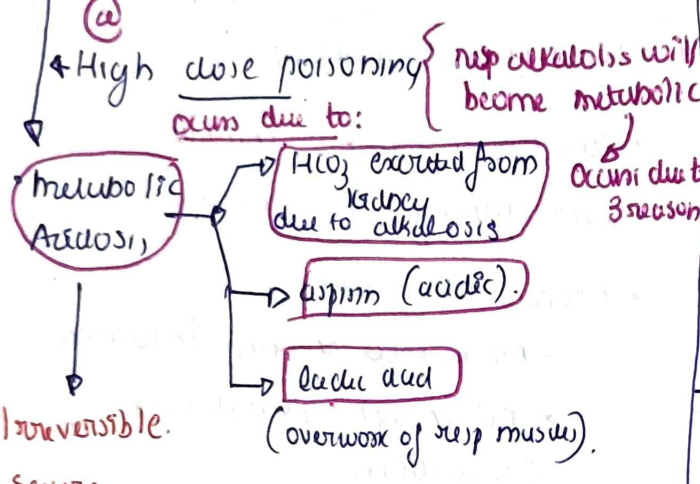 @
High dose poisoning
resp alkalosis will
become metabolic
occurs due to:
occurs due t
3 reason
Metabolic
Acidosis
HCO3 excreted from
kidney
due to alkalosis
aspirin (acidic).
lactic acid
(overwork of resp muscles).
Irreversible.